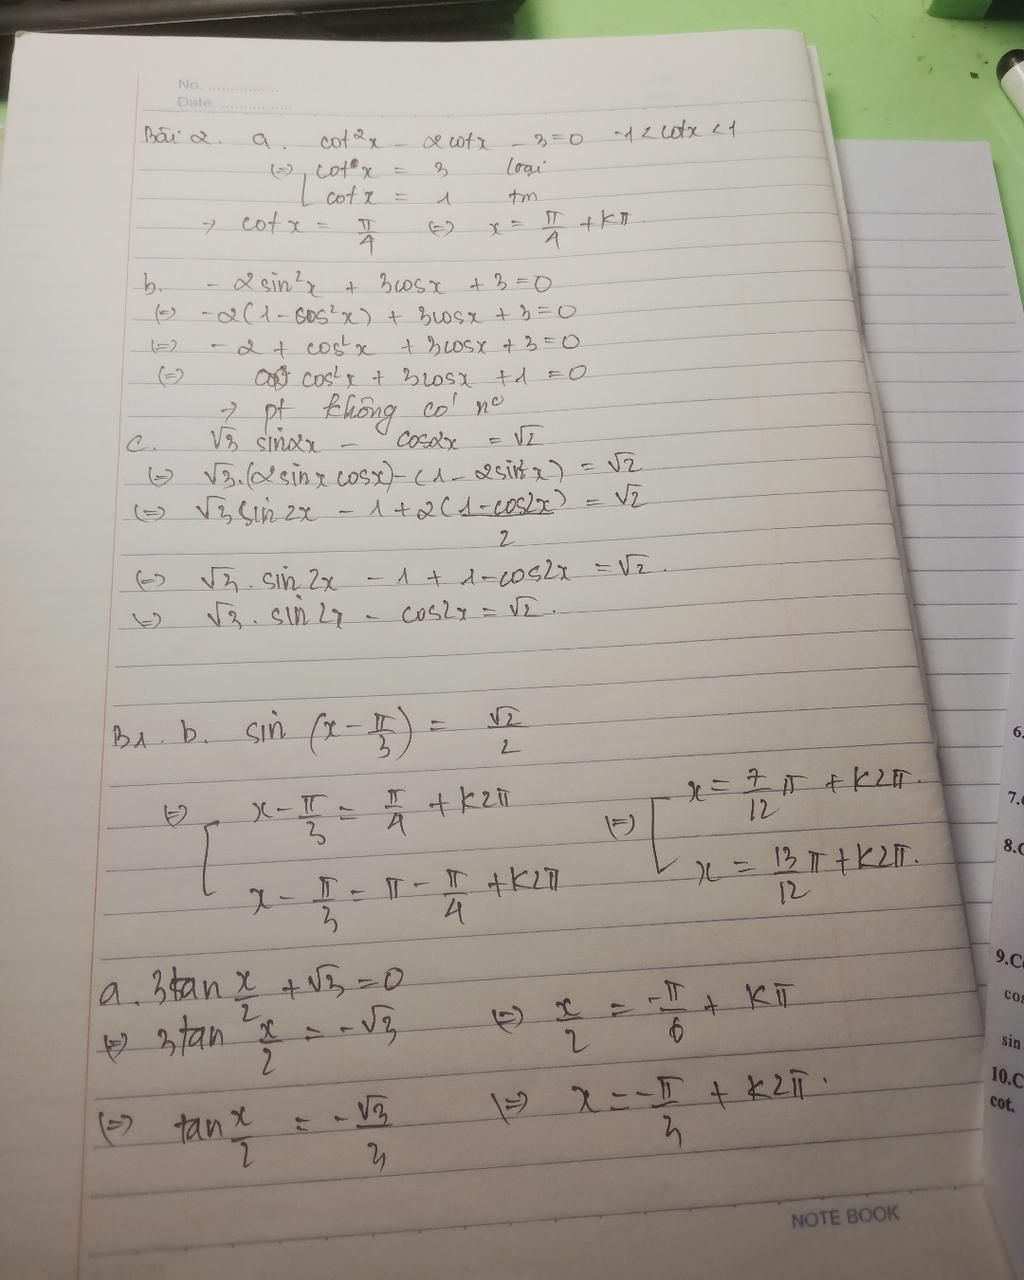 No. ................
Date. ................
Bài 2. a. cot²x - 2cotx - 3=0 -1<cotx<1
(=) [ cot x = 3 loại
cot x = 1 tm
→ cot x = π/4 (=) x = π/4 + kπ
b. - 2sin²x + 3cosx + 3=0
(=) -2(1-cos²x) + 3cosx + 3=0
(=) - 2 + cos²x + 3cosx + 3=0
(=) cos²x + 3cosx + 1 = 0
→ pt không có n⁰
c. √3 sin2x - cos2x = √2
(=) √3.(2sinx cosx)-(1-2sin²x) = √2
(=) √3 sin2x - 1+2(1-cos2x)/2 = √2
(=) √3. sin2x - 1 + 1-cos2x = √2.
(=) √3. sin2x - cos2x = √2.
B1. b. sin (x - π/3) = √2/2
(=) [ x - π/3 = π/4 + k2π
x - π/3 = π - π/4 + k2π
(=) [ x = 7/12 π + k2π.
x = 13/12 π + k2π.
a. 3tan x/2 + √3 = 0
(=) 3tan x/2 = - √3 (=) x/2 = -π/6 + kπ
(=) tan x/2 = - √3/3 (=) x = -π/3 + k2π.
NOTE BOOK
6.
7.
8.
9.C
cos
sin
10.C
cot.